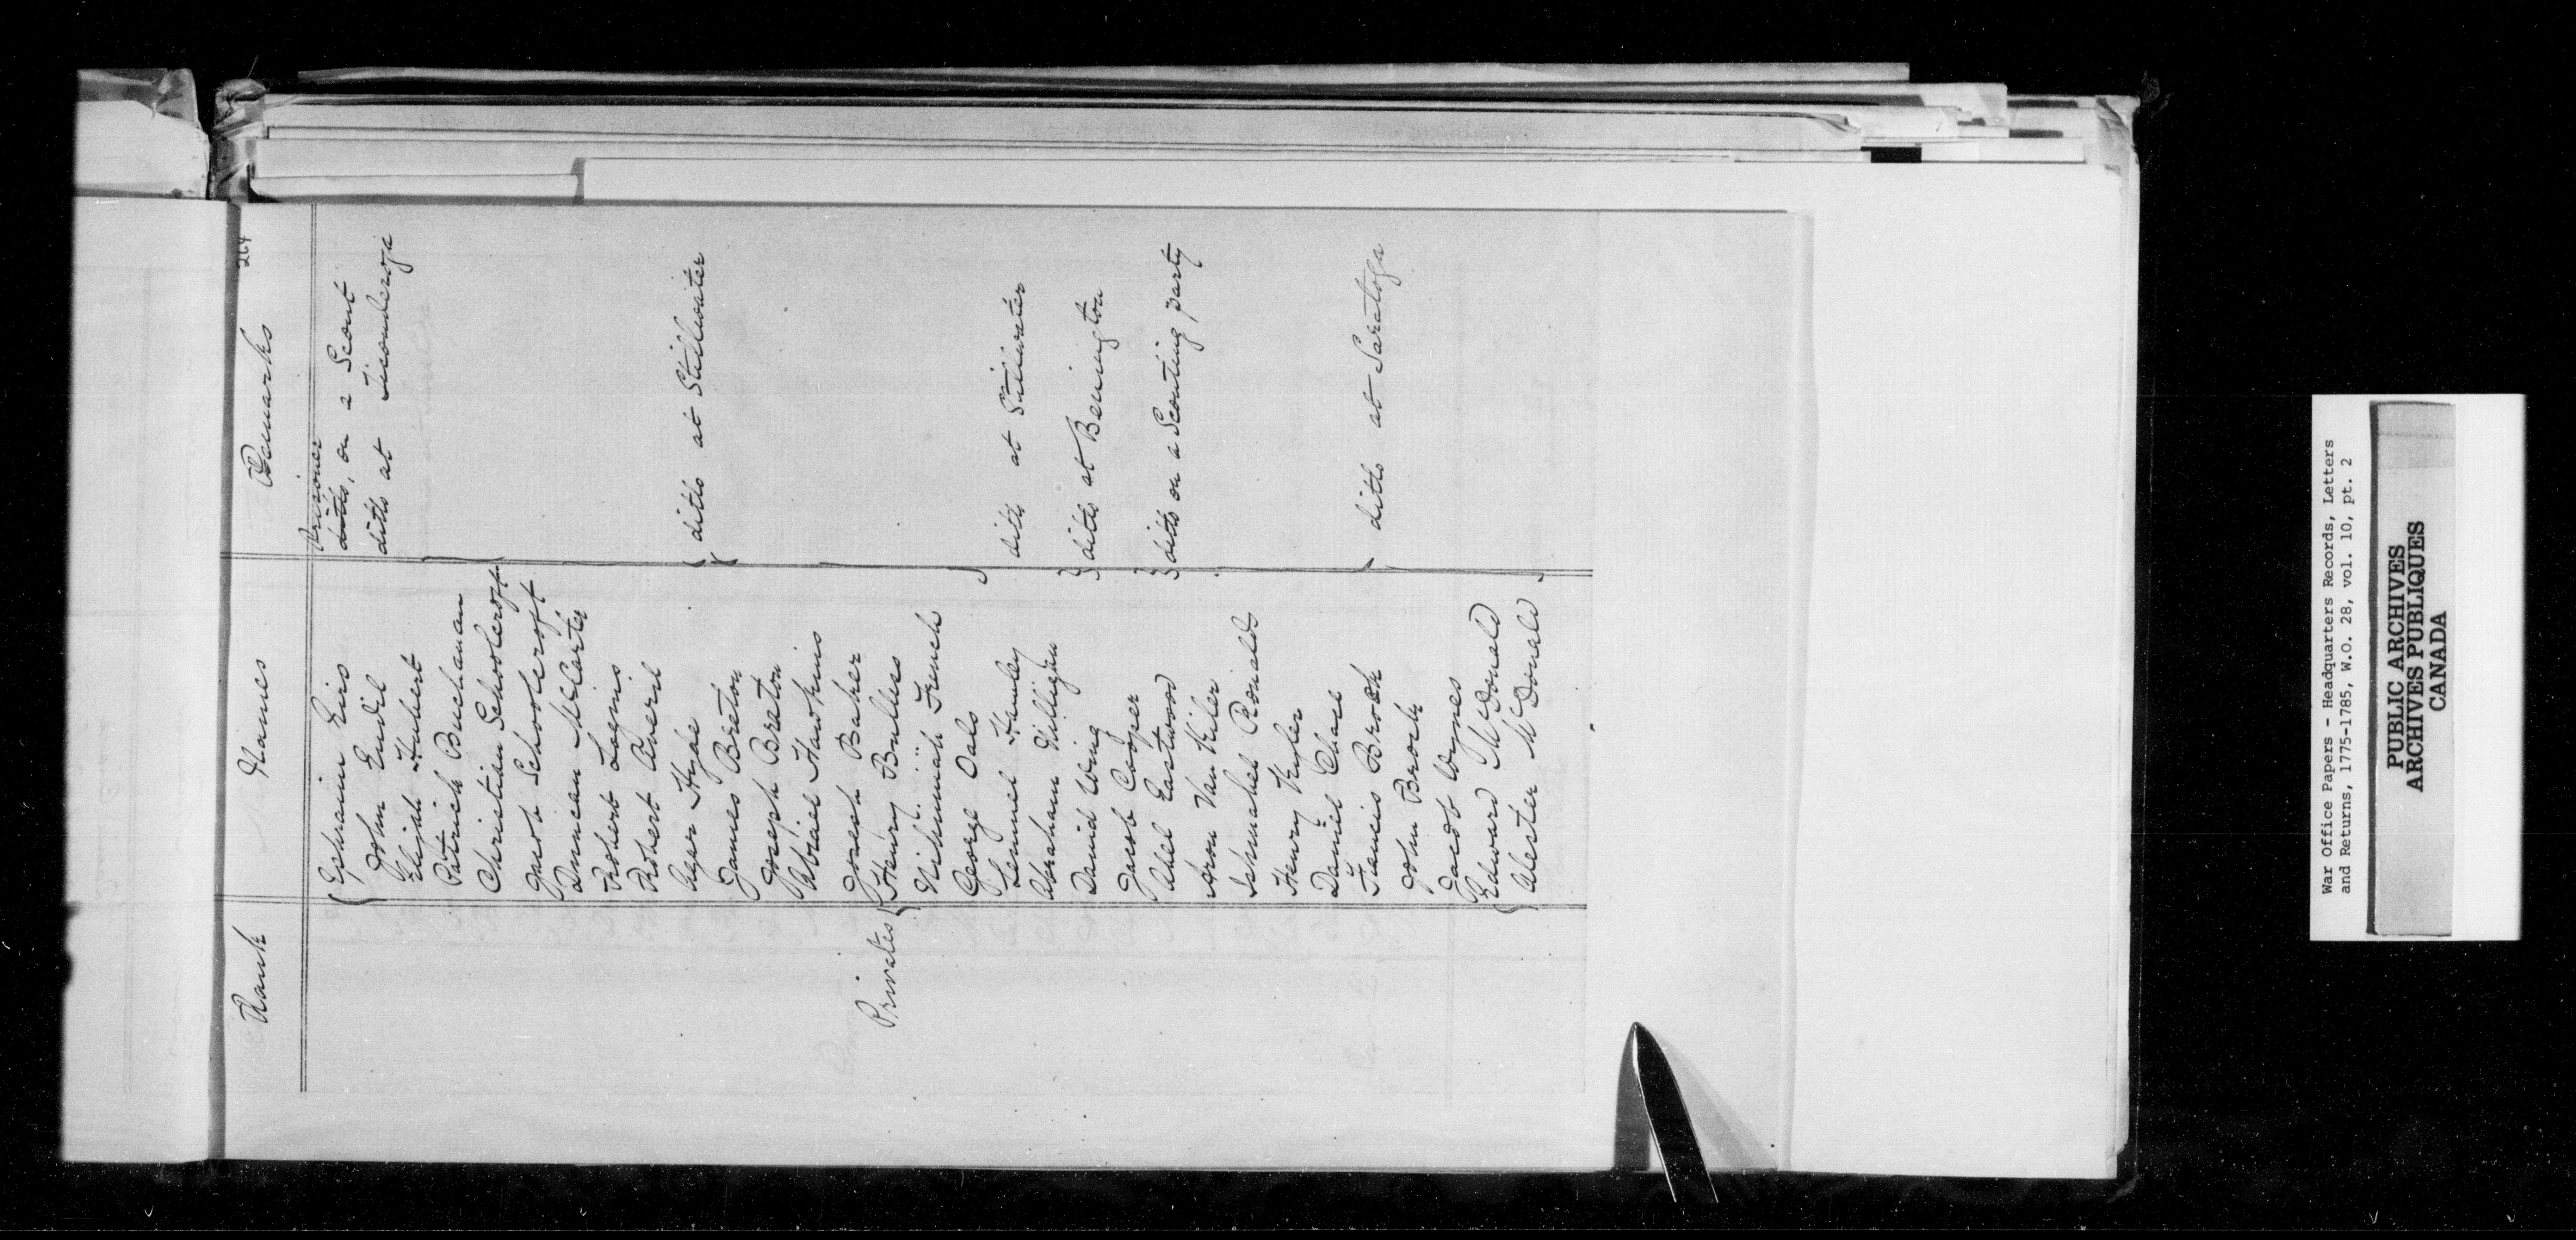 264
Rank Names Remarks
Prisoner
Ephraim Eirs ditto, on a Scout
John Eudil ditto at Ticonderoga
Elijah Hubert
Patrick Buchanan
Christian Schoolcroft
Jacob Schoolcroft
Duncan McCarter
Robert Loginis
Robert Averil
Ager Hyde ditto at Stillwater
James Breton
Joseph Breton
Abraiel Hawkins
Joseph Baker
Privates Henry Bulless
Nehimiah French
George Oals
Lemuel Hemley ditto at Stillwater
Abraham Killigan
David Wing ditto at Benington
Jacob Cooper
Abel Eastwood ditto on a Scouting party
Aron Van Kiler
Ishmahel Ronalds
Henry Kyler
Daniel Chace
Francis Brock ditto at Saratoga
John Brock
Jacob Wynes
Edward McDonald
Alester McDonald
War Office Papers - Headquarters Records, Letters
and Returns, 1775-1785, W.O. 28, vol. 10, pt. 2
PUBLIC ARCHIVES
ARCHIVES PUBLIQUES
CANADA